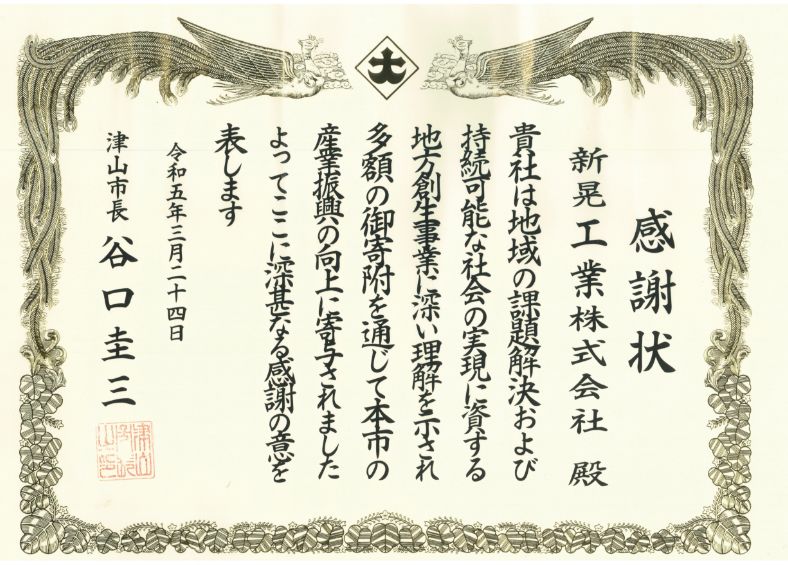 感謝状
新晃工業株式会社 殿
貴社は地域の課題解決および
持続可能な社会の実現に資する
地方創生事業に深い理解を示され
多額の御寄附を通じて本市の
産業振興の向上に寄与されました
よってここに深甚なる感謝の意を
表します
令和五年三月二十四日
津山市長 谷口圭三